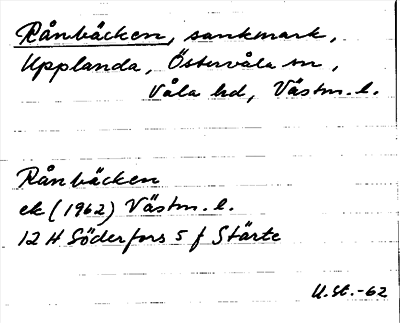 Rånbäcken, sankmark,
Upplanda, Östervåla sn,
Våla hd, Västm. l.
Rånbäcken
ek (1962) Västm. l.
12 H Söderfors 5 f Stärte
U.St.-62